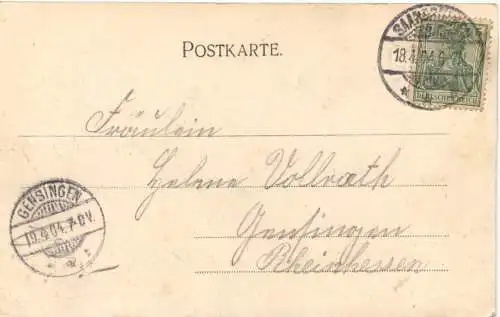 POSTKARTE.
18.4.04.
DEUTSCHES REICH
Fräulein
Helene Vollrath
Gensingen
Rheinhessen
GENSINGEN
19.4.04.7-8V.